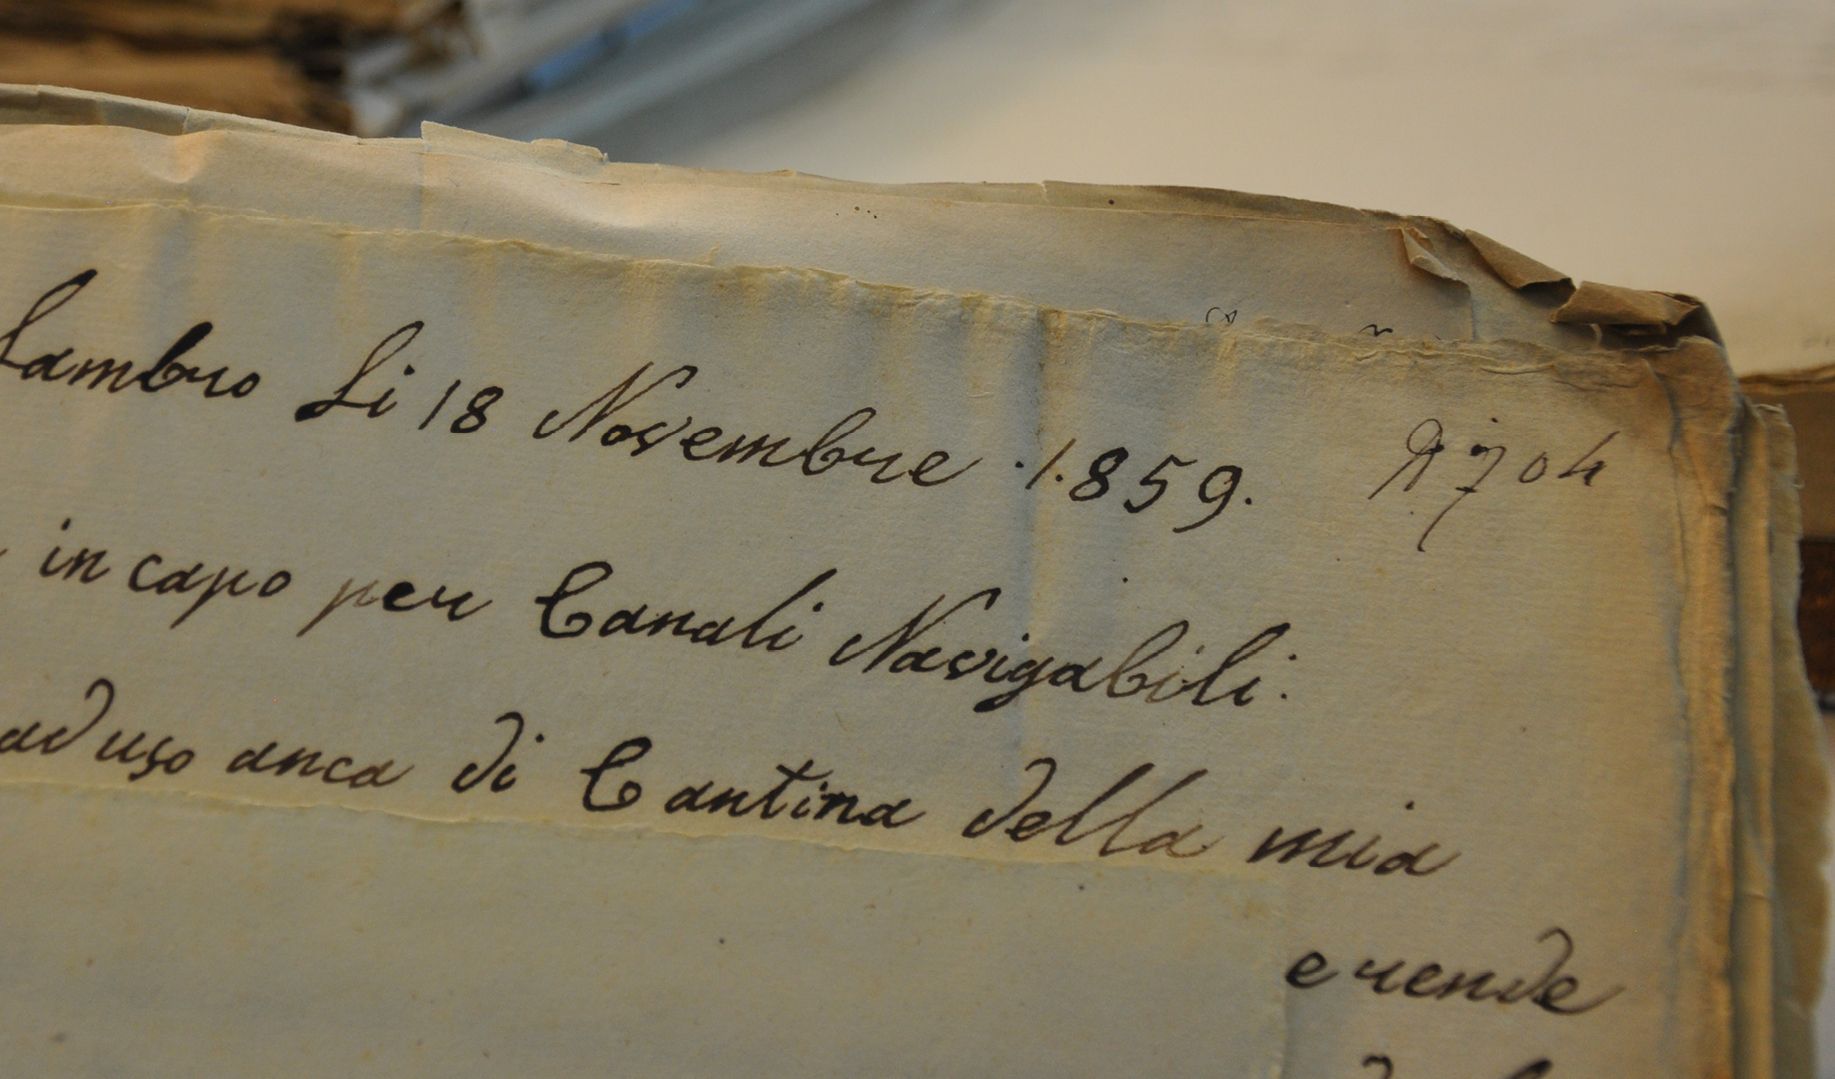 Lambro Li 18 Novembre .1.859. N 704
in capo per Canali Navigabili.
ad uso anca di Cantina della mia
e rende